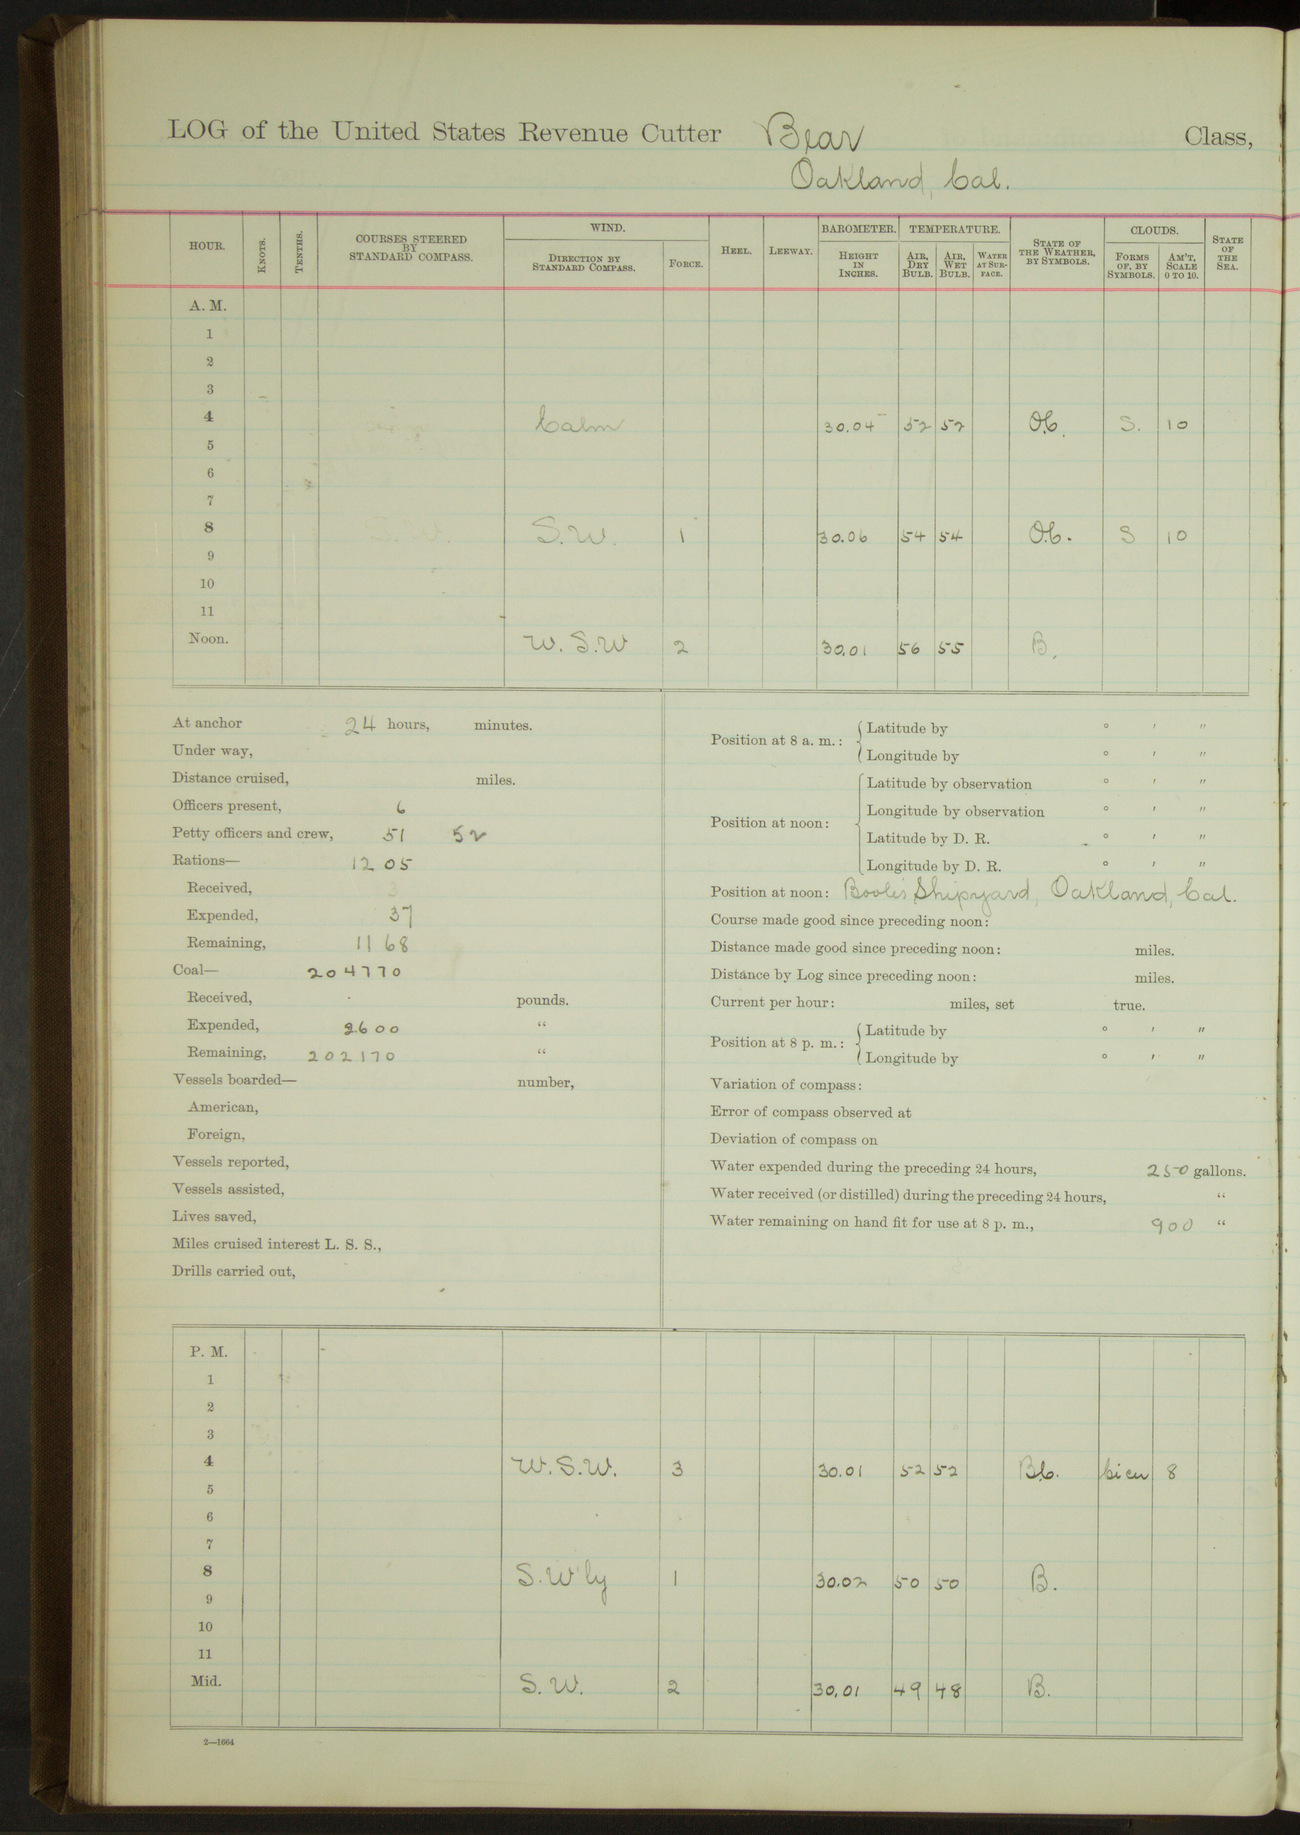 LOG of the United States Revenue Cutter Bear Class,
Oakland, Cal.
HOUR. KNOTS. TENTHS. COURSES STEERED BY STANDARD COMPASS. WIND. DIRECTION BY STANDARD COMPASS. FORCE. HEEL. LEEWAY. BAROMETER. HEIGHT IN INCHES. TEMPERATURE. AIR, DRY BULB. AIR, WET BULB. WATER AT SURFACE. STATE OF THE WEATHER, BY SYMBOLS. CLOUDS. FORMS OF, BY SYMBOLS. AM'T, SCALE 0 TO 10. STATE OF THE SEA.
A. M.
1
2
3
4 Calm 30.04 52 52 O.C. S. 10
5
6
7
8 S.W. 1 30.06 54 54 O.C. S 10
9
10
11
Noon. W. S.W 2 30.01 56 55 B.
At anchor 24 hours, minutes.
Under way,
Distance cruised, miles.
Officers present, 6
Petty officers and crew, 51 52
Rations— 1205
Received,
Expended, 37
Remaining, 1168
Coal— 204770
Received, pounds.
Expended, 2600 “
Remaining, 202170 “
Vessels boarded— number,
American,
Foreign,
Vessels reported,
Vessels assisted,
Lives saved,
Miles cruised interest L. S. S.,
Drills carried out,
Position at 8 a. m.: Latitude by ° ′ ″
Longitude by ° ′ ″
Position at noon: Latitude by observation ° ′ ″
Longitude by observation ° ′ ″
Latitude by D. R. ° ′ ″
Longitude by D. R. ° ′ ″
Position at noon: Boole's Shipyard, Oakland, Cal.
Course made good since preceding noon:
Distance made good since preceding noon: miles.
Distance by Log since preceding noon: miles.
Current per hour: miles, set true.
Position at 8 p. m.: Latitude by ° ′ ″
Longitude by ° ′ ″
Variation of compass:
Error of compass observed at
Deviation of compass on
Water expended during the preceding 24 hours, 250 gallons.
Water received (or distilled) during the preceding 24 hours, “
Water remaining on hand fit for use at 8 p. m., 900 “
P. M.
1
2
3
4 W. S.W. 3 30.01 52 52 B.C. Ci cu 8
5
6
7
8 S. W'ly 1 30.02 50 50 B.
9
10
11
Mid. S. W. 2 30.01 49 48 B.
2—1664